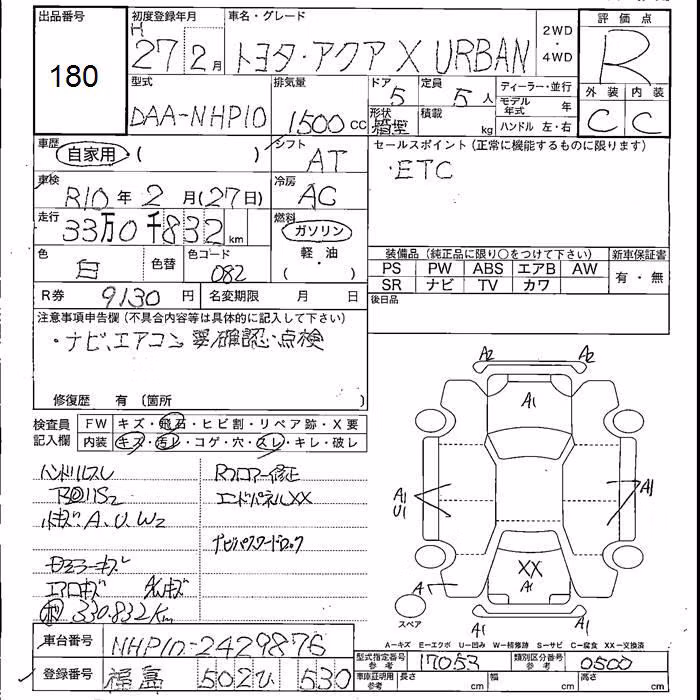 出品番号
180
初度登録年月
H
27年 2月
車名・グレード
トヨタ・アクア X URBAN
2WD
・
4WD
評価点
R
外装 内装
C C
型式
DAA-NHP10
排気量
1500 cc
ドア
5
形状
定員
5人
積載
kg
ディーラー・並行
モデル年式 年
ハンドル 左・右
車歴
自家用 ( )
シフト
AT
セールスポイント (正常に機能するものに限ります)
・ETC
車検
R10年 2月(27日)
冷房
AC
走行
33万0千832 km
燃料
ガソリン
軽・油
( )
色
白
色替
色コード
082
装備品 (純正品に限り○をつけて下さい)
新車保証書
PS PW ABS エアB AW
有・無
SR ナビ TV カワ
R券 9130円
名変期限 月 日
後日品
注意事項申告欄 (不具合内容等は具体的に記入して下さい)
・ナビ、エアコン要確認・点検
修復歴 有 (箇所 )
検査員
記入欄
FW キズ・飛石・ヒビ割・リペア跡・X要
内装 キズ・汚レ・コゲ・穴・スレ・キレ・破レ
ハンドルスレ
Rフロアー修正
エンドパネルXX
小キズ A、U、W2
ナビパスワードロック
エアロキズ
330.832km
A2 A2
A1
A1
U1
A1
XX
A1
A
A1 A1
スペア
A-キズ E-エクボ U-凹み W-補修跡 S-サビ C-腐食 XX-交換済
車台番号 NHP10-2429876
登録番号 福島 502 ひ 530
型式指定番号
参考
17053
類別区分番号
参考
0500
車庫証明用
参考
長さ cm 幅 cm 高さ cm